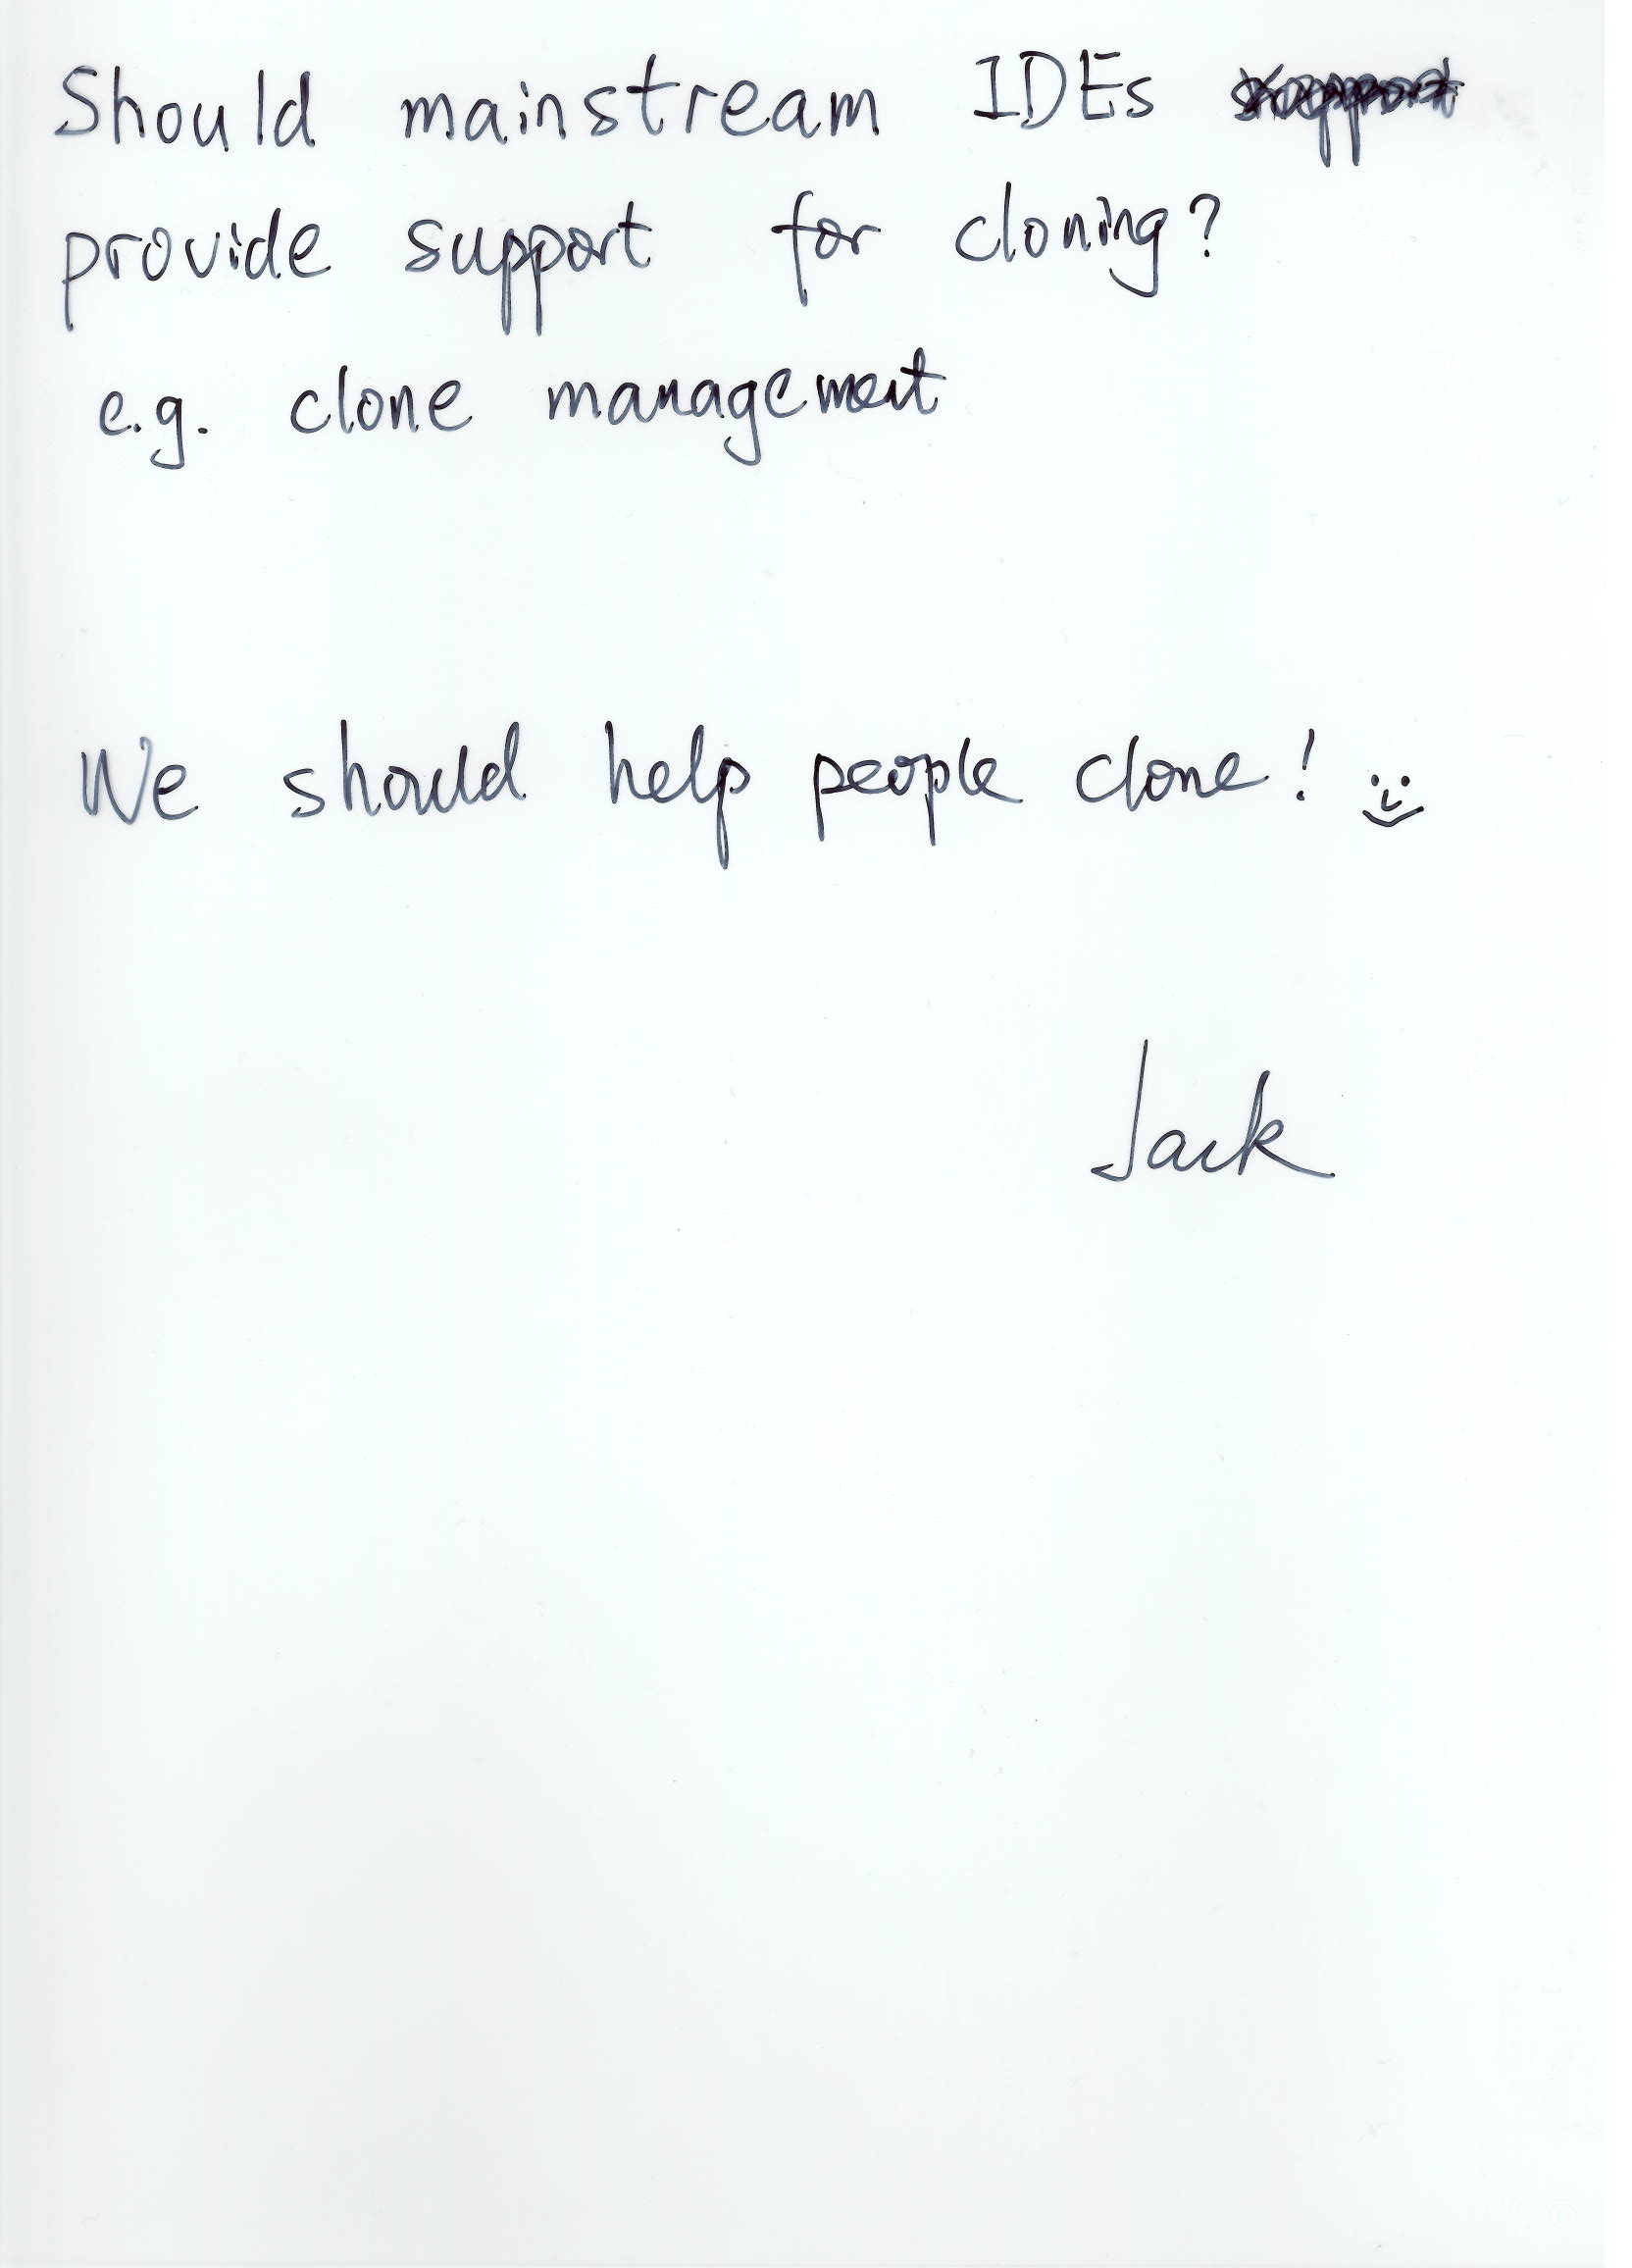 Should mainstream IDEs
provide support for cloning?
e.g. clone management
We should help people clone!
Jack